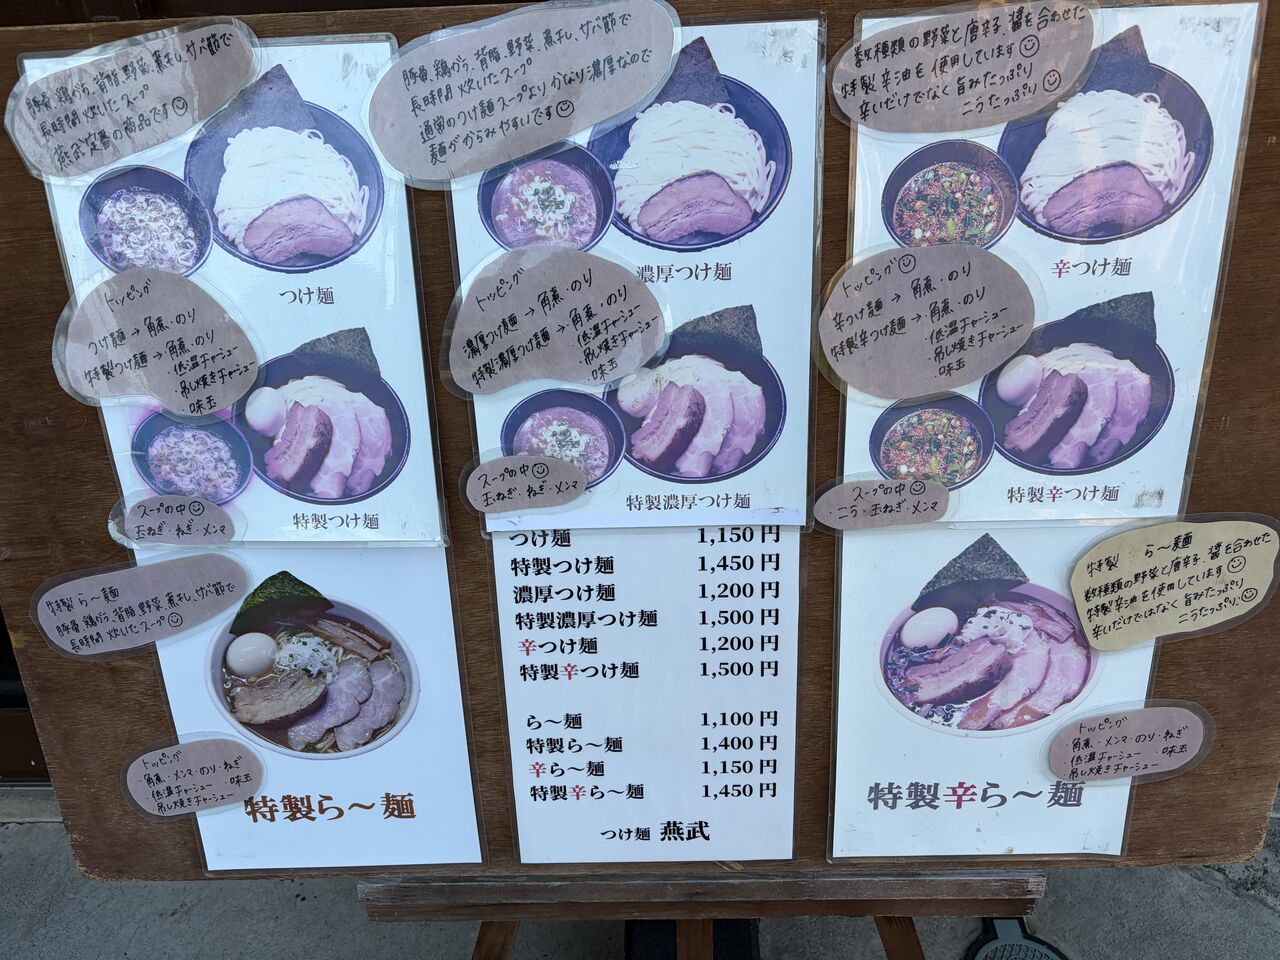 豚骨、鶏がら、背脂、野菜、煮干し、サバ節で
長時間 炊いたスープ
燕武定番の商品です
つけ麺
トッピング
つけ麺→角煮・のり
特製つけ麺→角煮・のり
・低温チャーシュー
・吊し焼きチャーシュー
・味玉
特製つけ麺
スープの中
・玉ねぎ・ねぎ・メンマ
豚骨、鶏がら、背脂、野菜、煮干し、サバ節で
長時間 炊いたスープ
通常のつけ麺スープより かなり濃厚なので
麺がからみやすいです
濃厚つけ麺
トッピング
濃厚つけ麺→角煮・のり
特製濃厚つけ麺→角煮・のり
・低温チャーシュー
・吊し焼きチャーシュー
・味玉
特製濃厚つけ麺
スープの中
・玉ねぎ・ねぎ・メンマ
数種類の野菜と唐辛子、醤を合わせた
特製辛油を使用しています
辛いだけでなく旨みたっぷり
ニラたっぷり
辛つけ麺
トッピング
辛つけ麺→角煮・のり
特製辛つけ麺→角煮・のり
・低温チャーシュー
・吊し焼きチャーシュー
・味玉
特製辛つけ麺
スープの中
・ニラ・玉ねぎ・メンマ
特製 ら〜麺
豚骨、鶏がら、背脂、野菜、煮干し、サバ節で
長時間 炊いたスープ
トッピング
・角煮・メンマ・のり・ねぎ
・低温チャーシュー ・味玉
・吊し焼きチャーシュー
特製ら〜麺
つけ麺 1,150円
特製つけ麺 1,450円
濃厚つけ麺 1,200円
特製濃厚つけ麺 1,500円
辛つけ麺 1,200円
特製辛つけ麺 1,500円
ら〜麺 1,100円
特製ら〜麺 1,400円
辛ら〜麺 1,150円
特製辛ら〜麺 1,450円
つけ麺 燕武
特製 ら〜麺
数種類の野菜と唐辛子、醤を合わせた
特製辛油を使用しています
辛いだけではなく旨みたっぷり
ニラたっぷり
トッピング
・角煮・メンマ・のり・ねぎ
・低温チャーシュー ・味玉
・吊し焼きチャーシュー
特製辛ら〜麺